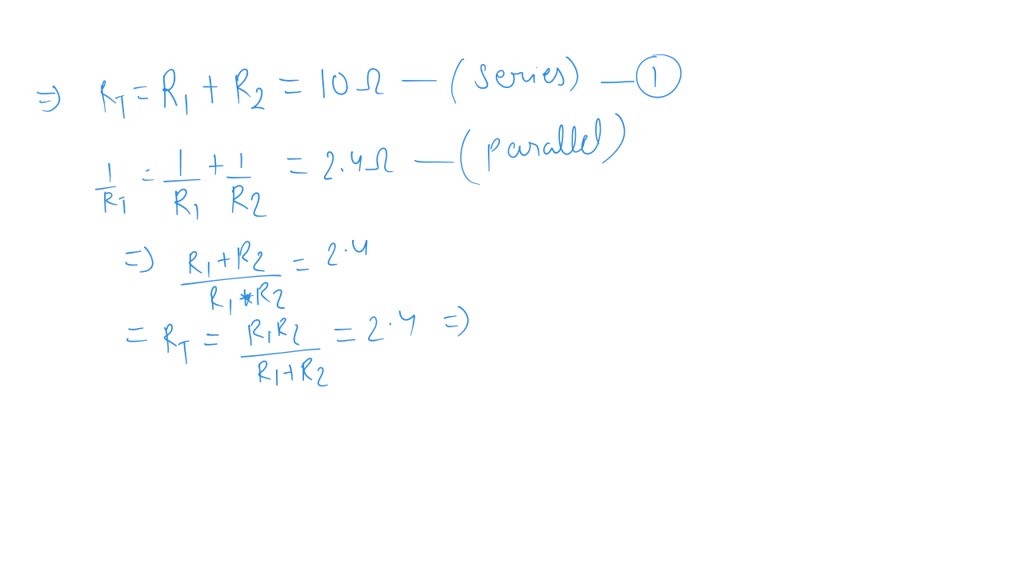 ⇒ R_T = R_1 + R_2 = 10Ω — (series) — ①
1/R_T = 1/R_1 + 1/R_2 = 2.4Ω — (parallel)
⇒ (R_1 + R_2)/(R_1 * R_2) = 2.4
= R_T = (R_1 R_2)/(R_1 + R_2) = 2.4 ⇒